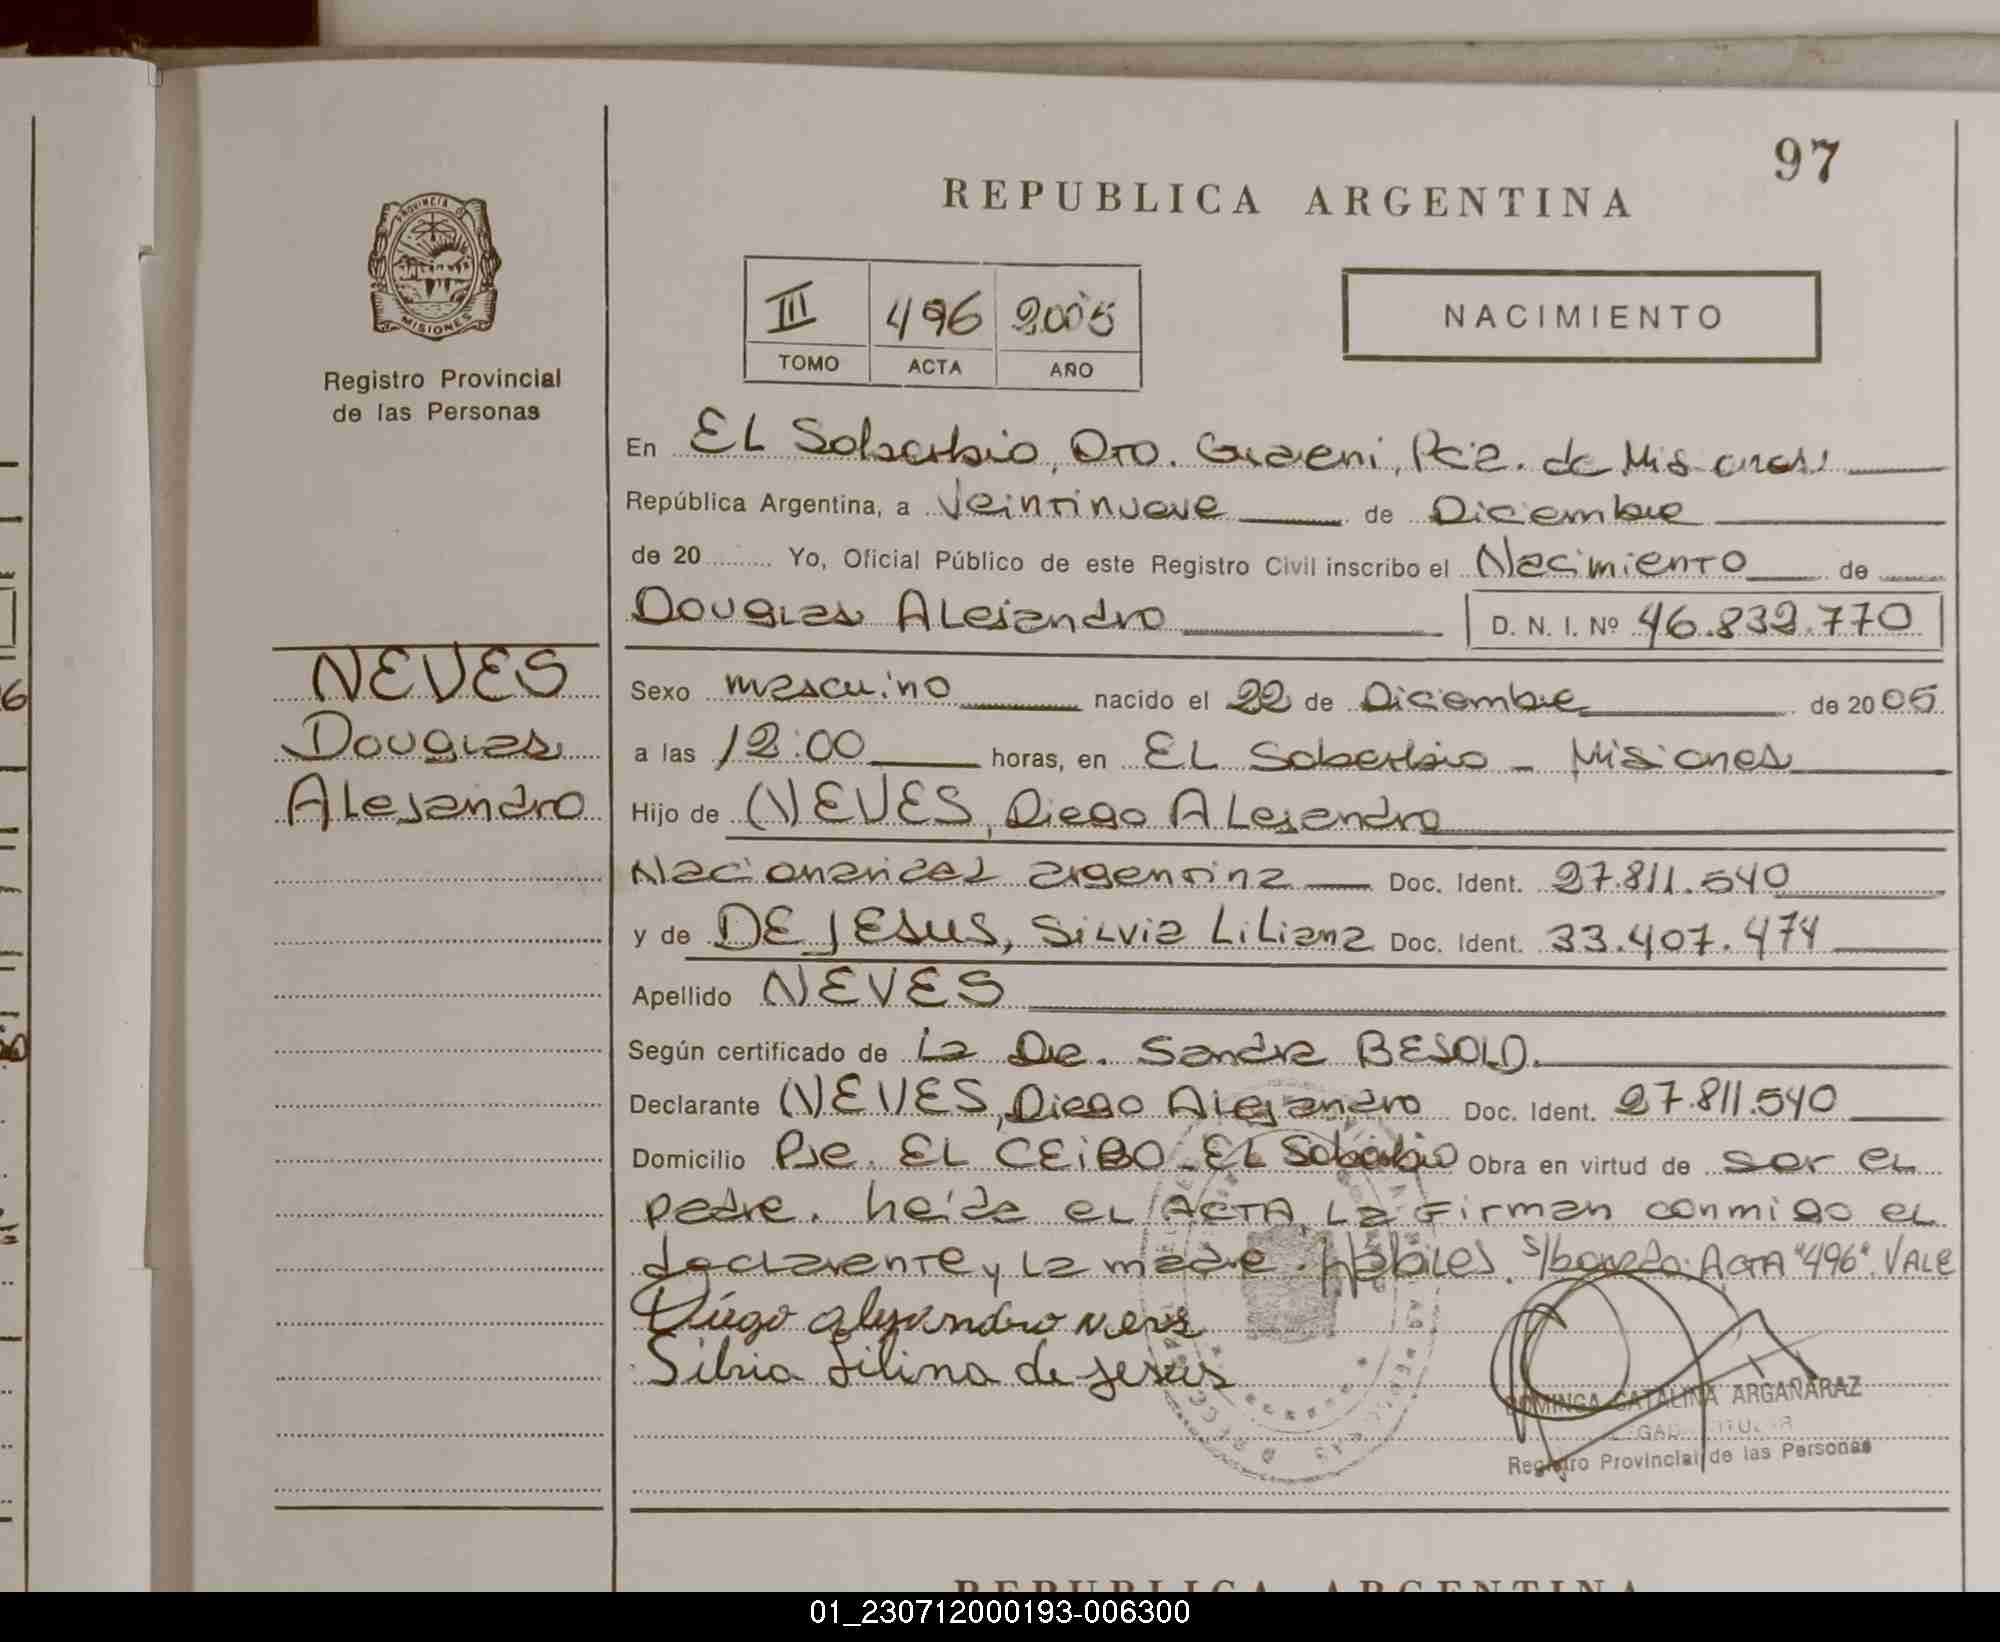 97
REPUBLICA ARGENTINA
PROVINCIA DE
MISIONES
Registro Provincial
de las Personas
III 496 2005
TOMO ACTA AÑO
NACIMIENTO
En EL Soberbio, Dto. Guarani, Pcia. de Misiones
República Argentina, a Veintinueve de Diciembre
de 20 Yo, Oficial Público de este Registro Civil inscribo el Nacimiento de
Douglas Alejandro D. N. I. Nº 46.832.770
NEVES
Douglas
Alejandro
Sexo masculino nacido el 22 de Diciembre de 2005
a las 12:00 horas, en EL Soberbio - Misiones
Hijo de NEVES, Diego Alejandro
Nacionalidad argentina Doc. Ident. 27.811.540
y de DE JESUS, Silvia Liliana Doc. Ident. 33.407.474
Apellido NEVES
Según certificado de La Dra. Sandra BESOLD.
Declarante NEVES, Diego Alejandro Doc. Ident. 27.811.540
Domicilio Pje. EL CEIBO - EL Soberbio Obra en virtud de ser el
padre. Leída el ACTA, La Firman conmigo el
declarante y La madre. Hábiles. s/borrado: ACTA "496". VALE
Diego alejandro neves
Silvia Lilina de jesus
DOMINGA CATALINA ARGAÑARAZ
Registro Provincial de las Personas
REPUBLICA ARGENTINA
01_230712000193-006300